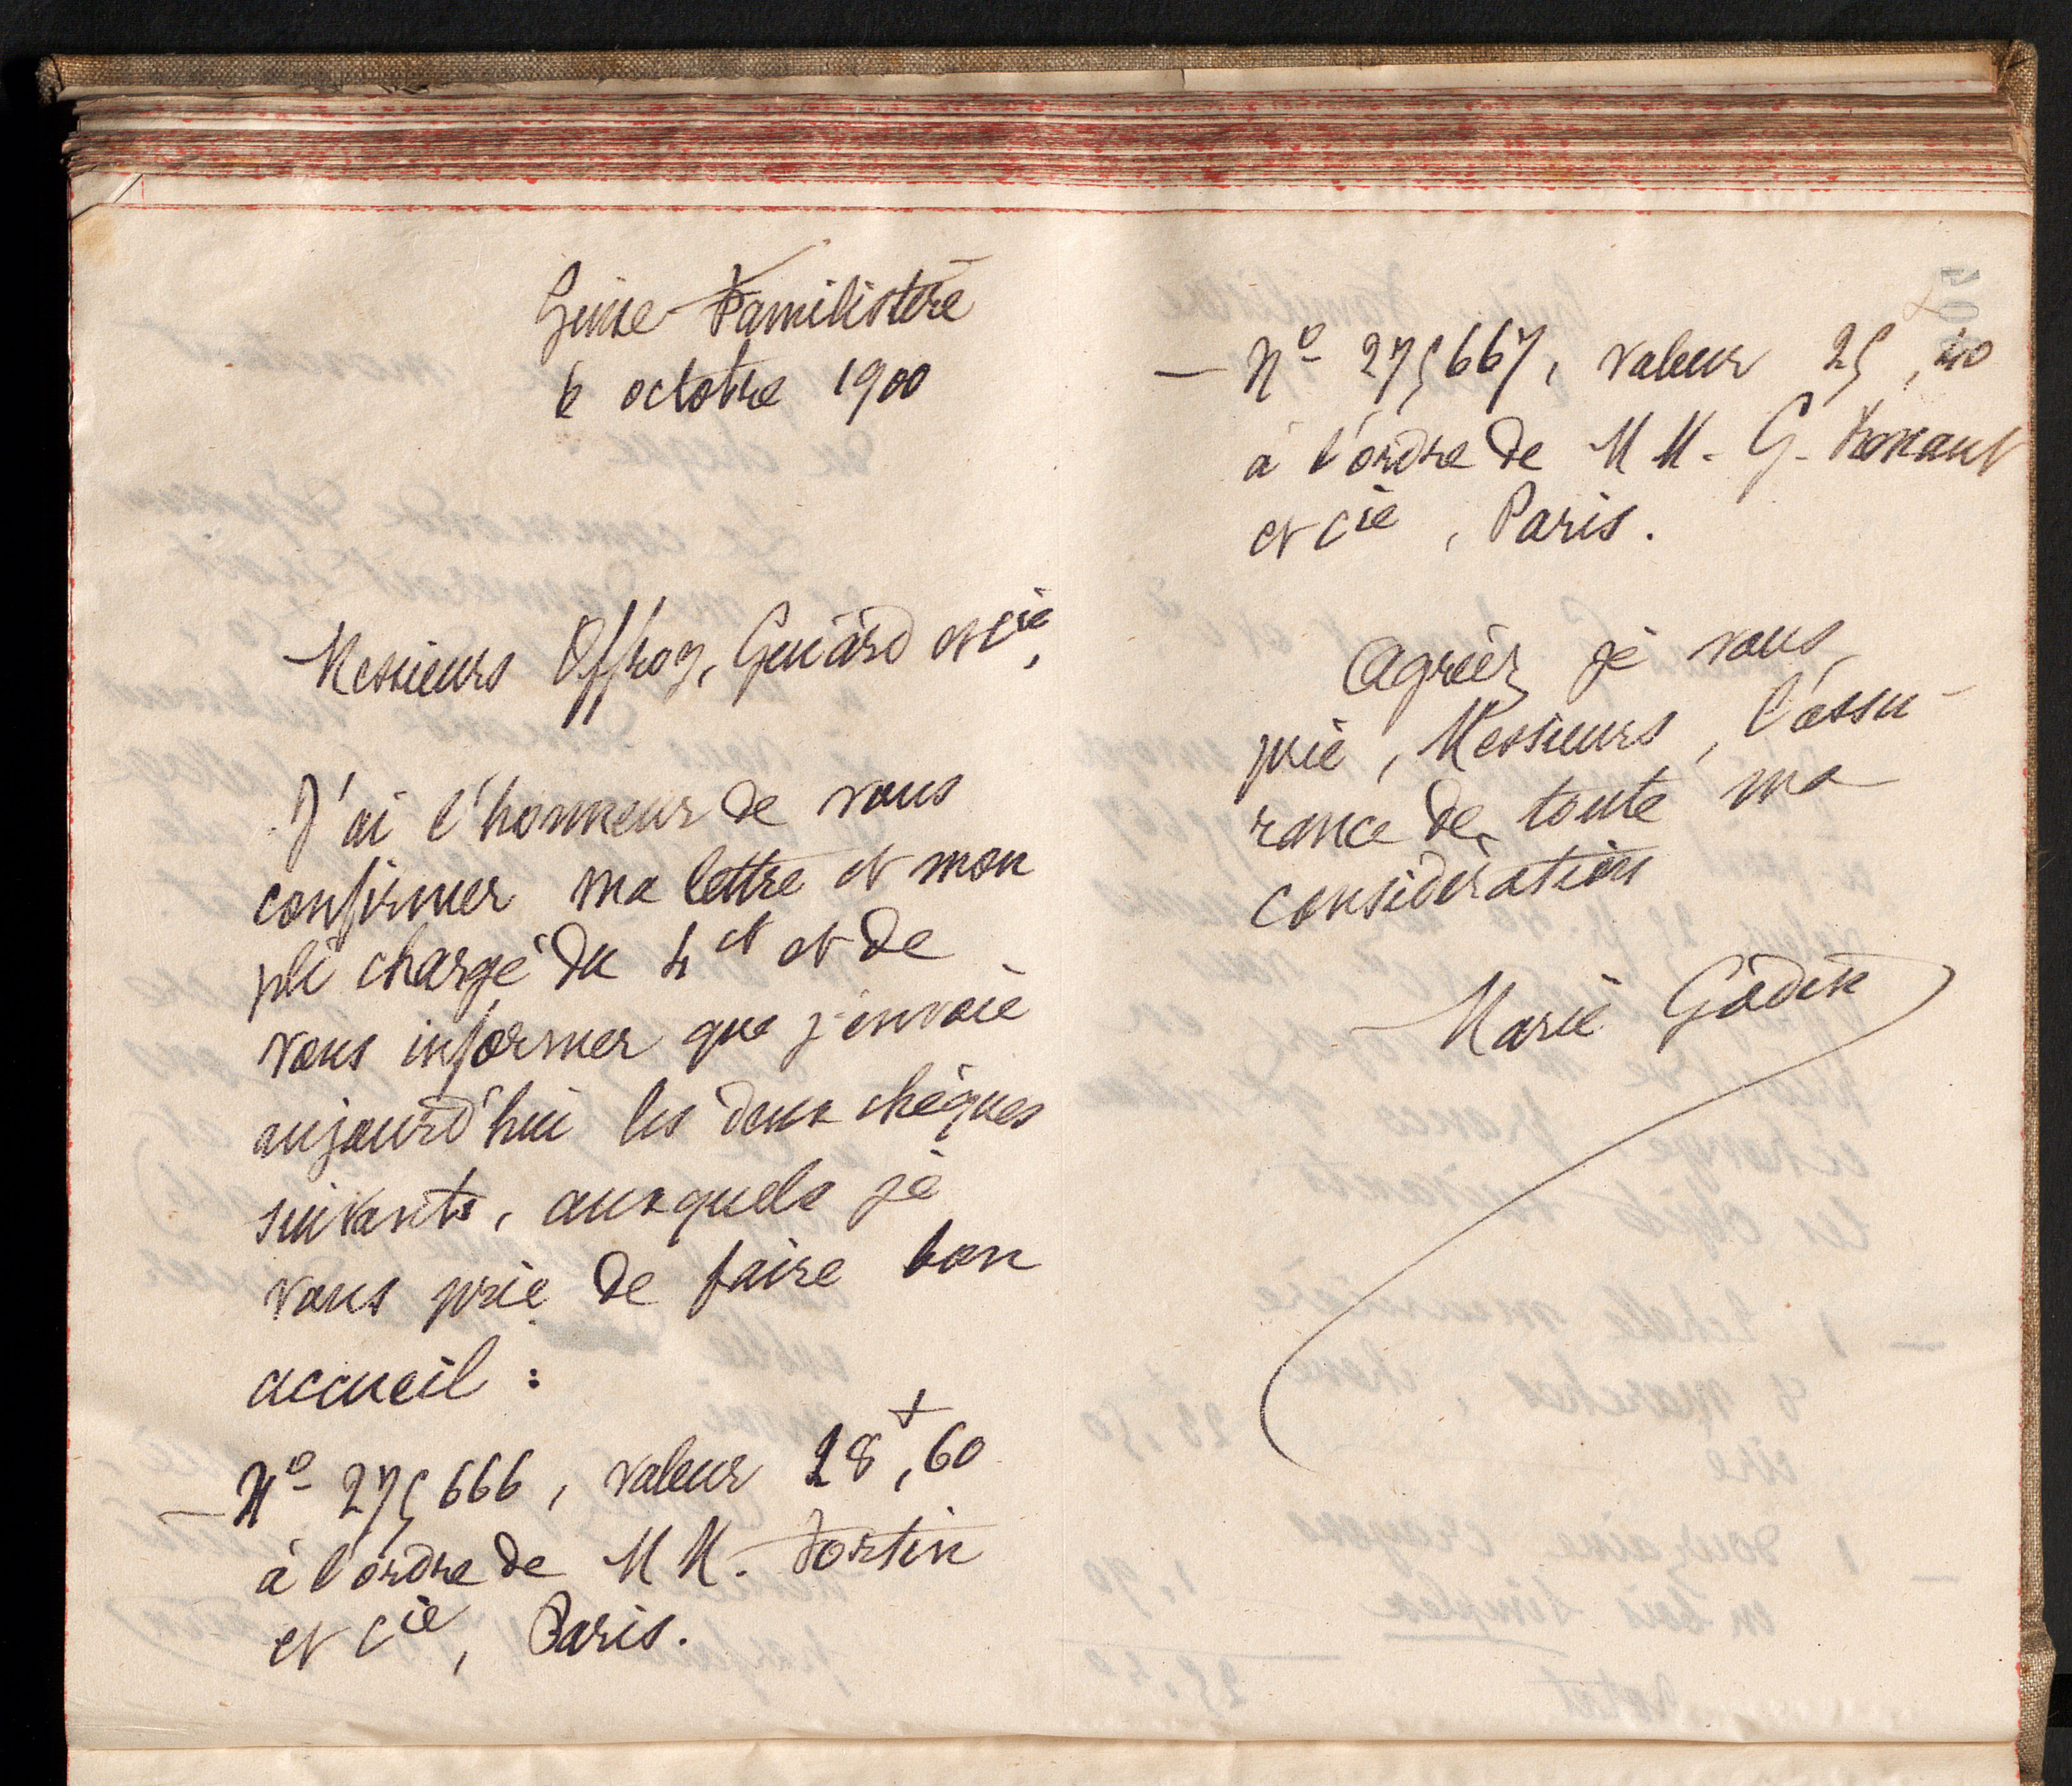 Guise-Familistère
6 octobre 1900
Messieurs Offroy, Guiard et Cie,
J'ai l'honneur de vous
confirmer ma lettre et mon
pli chargé du 4 ct et de
vous informer que j'envoie
aujourd'hui les deux chèques
suivants, auxquels je
vous prie de faire bon
accueil :
— No 275666, valeur 28f,60
à l'ordre de MM. Fortin
et Cie, Paris.
— No 275667, valeur 25,40
à l'ordre de MM. G.
et Cie, Paris.
Agréez je vous
prie, Messieurs, l'assu-
rance de toute ma
considération
Marie Godin